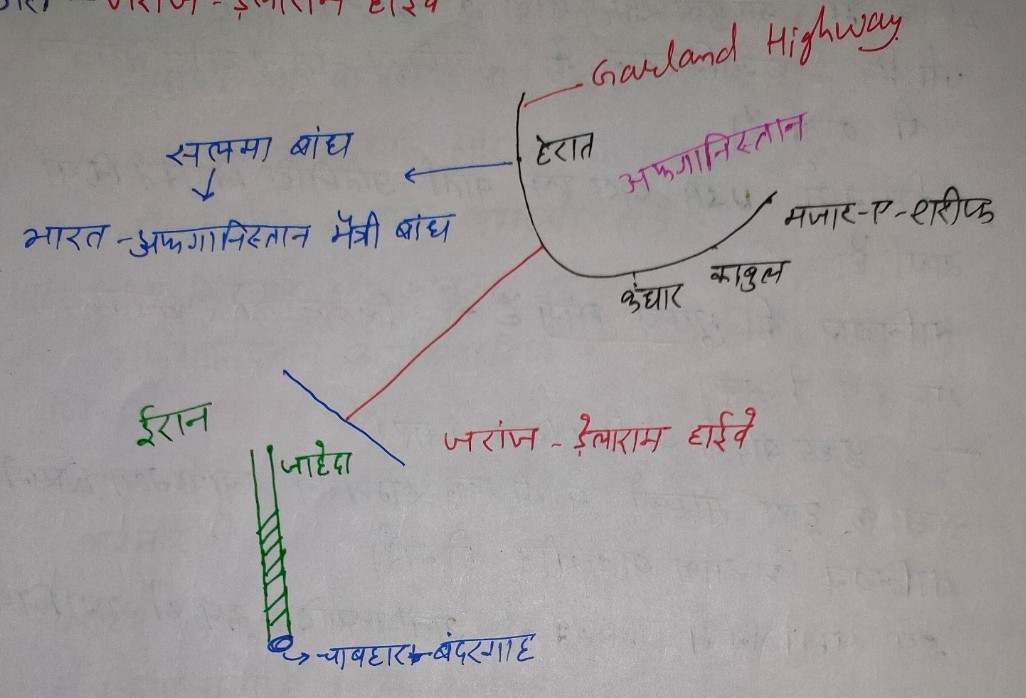 जरांज - डेलाराम हाईवे
Garland Highway
सलमा बांध
हेरात
अफगानिस्तान
भारत - अफगानिस्तान मैत्री बांध
मजार-ए-शरीफ
काबुल
कंधार
ईरान
जरांज - डेलाराम हाईवे
जाहेदा
चाबहार बंदरगाह